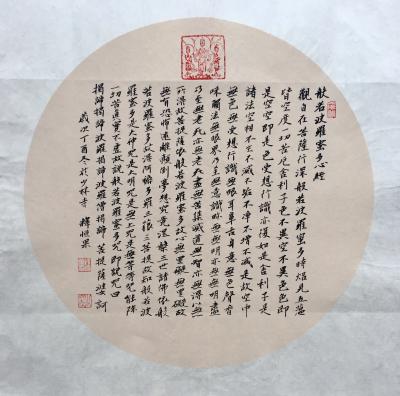 般若波羅蜜多心經
觀自在菩薩行深般若波羅蜜多時照見五蘊
皆空度一切苦厄舍利子色不異空不異色色即
是空空即是色受想行識亦復如是舍利子是
諸法空相不生不滅不垢不淨不增不減是故空中
無色無受想行識無眼耳鼻舌身意無色聲香
味觸法無眼界乃至無意識界無無明亦無無明盡
乃至無老死亦無老死盡無苦集滅道無智亦無得以無
所得故菩提薩埵依般若波羅蜜多故心無罣礙無罣礙故
無有恐怖遠離顛倒夢想究竟涅槃三世諸佛依般
若波羅蜜多故得阿耨多羅三藐三菩提故知般若波
羅蜜多是大神咒是大明咒是無上咒是無等等咒能除
一切苦真實不虛故說般若波羅蜜多咒即說咒曰
揭諦揭諦波羅揭諦波羅僧揭諦菩提薩婆訶
歲次丁酉冬於少林寺 釋恒果